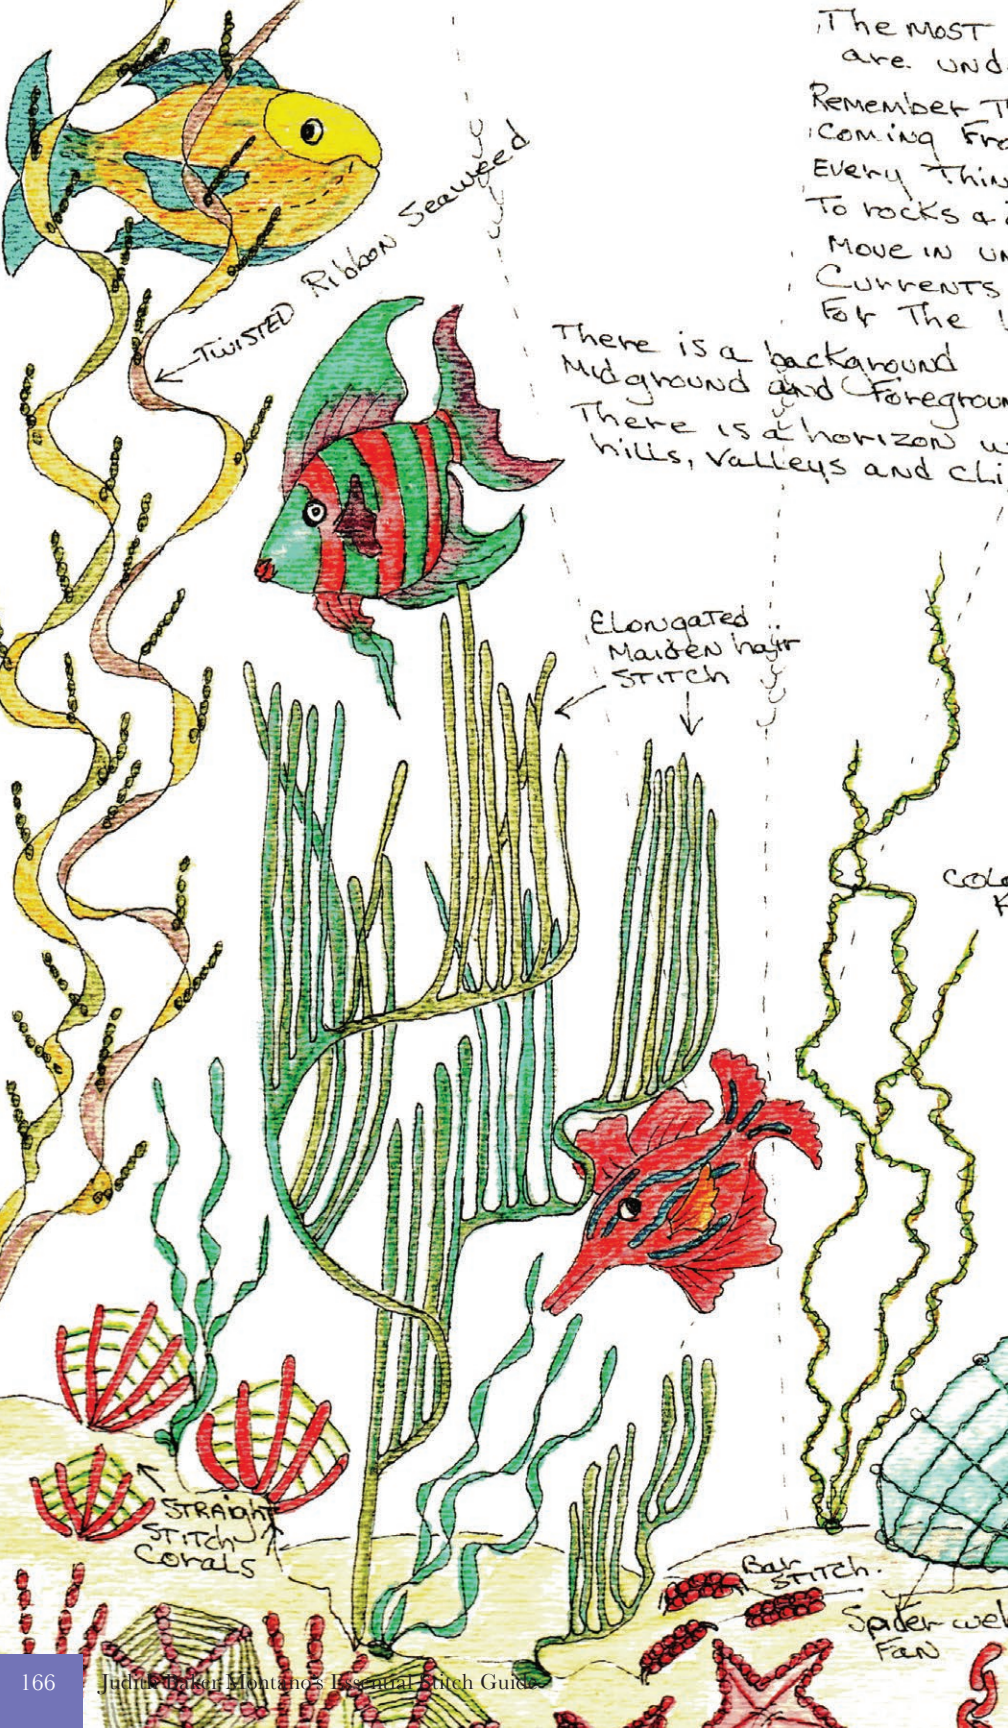 The most
are und
Remember Th
coming Fro
Every Thin
To rocks a
Move in un
Currents
For The
TWISTED Ribbon Seaweed
There is a background
Midground and Foregroun
There is a horizon w
hills, valleys and cli
Elongated
Maiden hair
STITCh
COLO
STRAighT
STiTCh
Corals
Bar
STITCh.
Spider web
FAN
166
Judith Baker Montano's Essential Stitch Guide